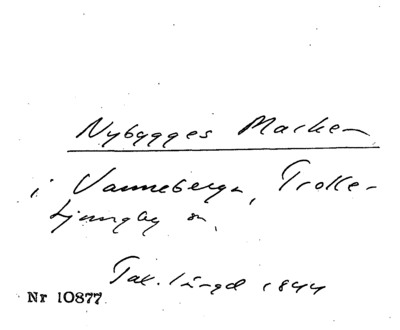 Nybygges Marken
i Vanneberga, Trolle-
Ljungby sn.
Tax.längd 1844
Nr 10877